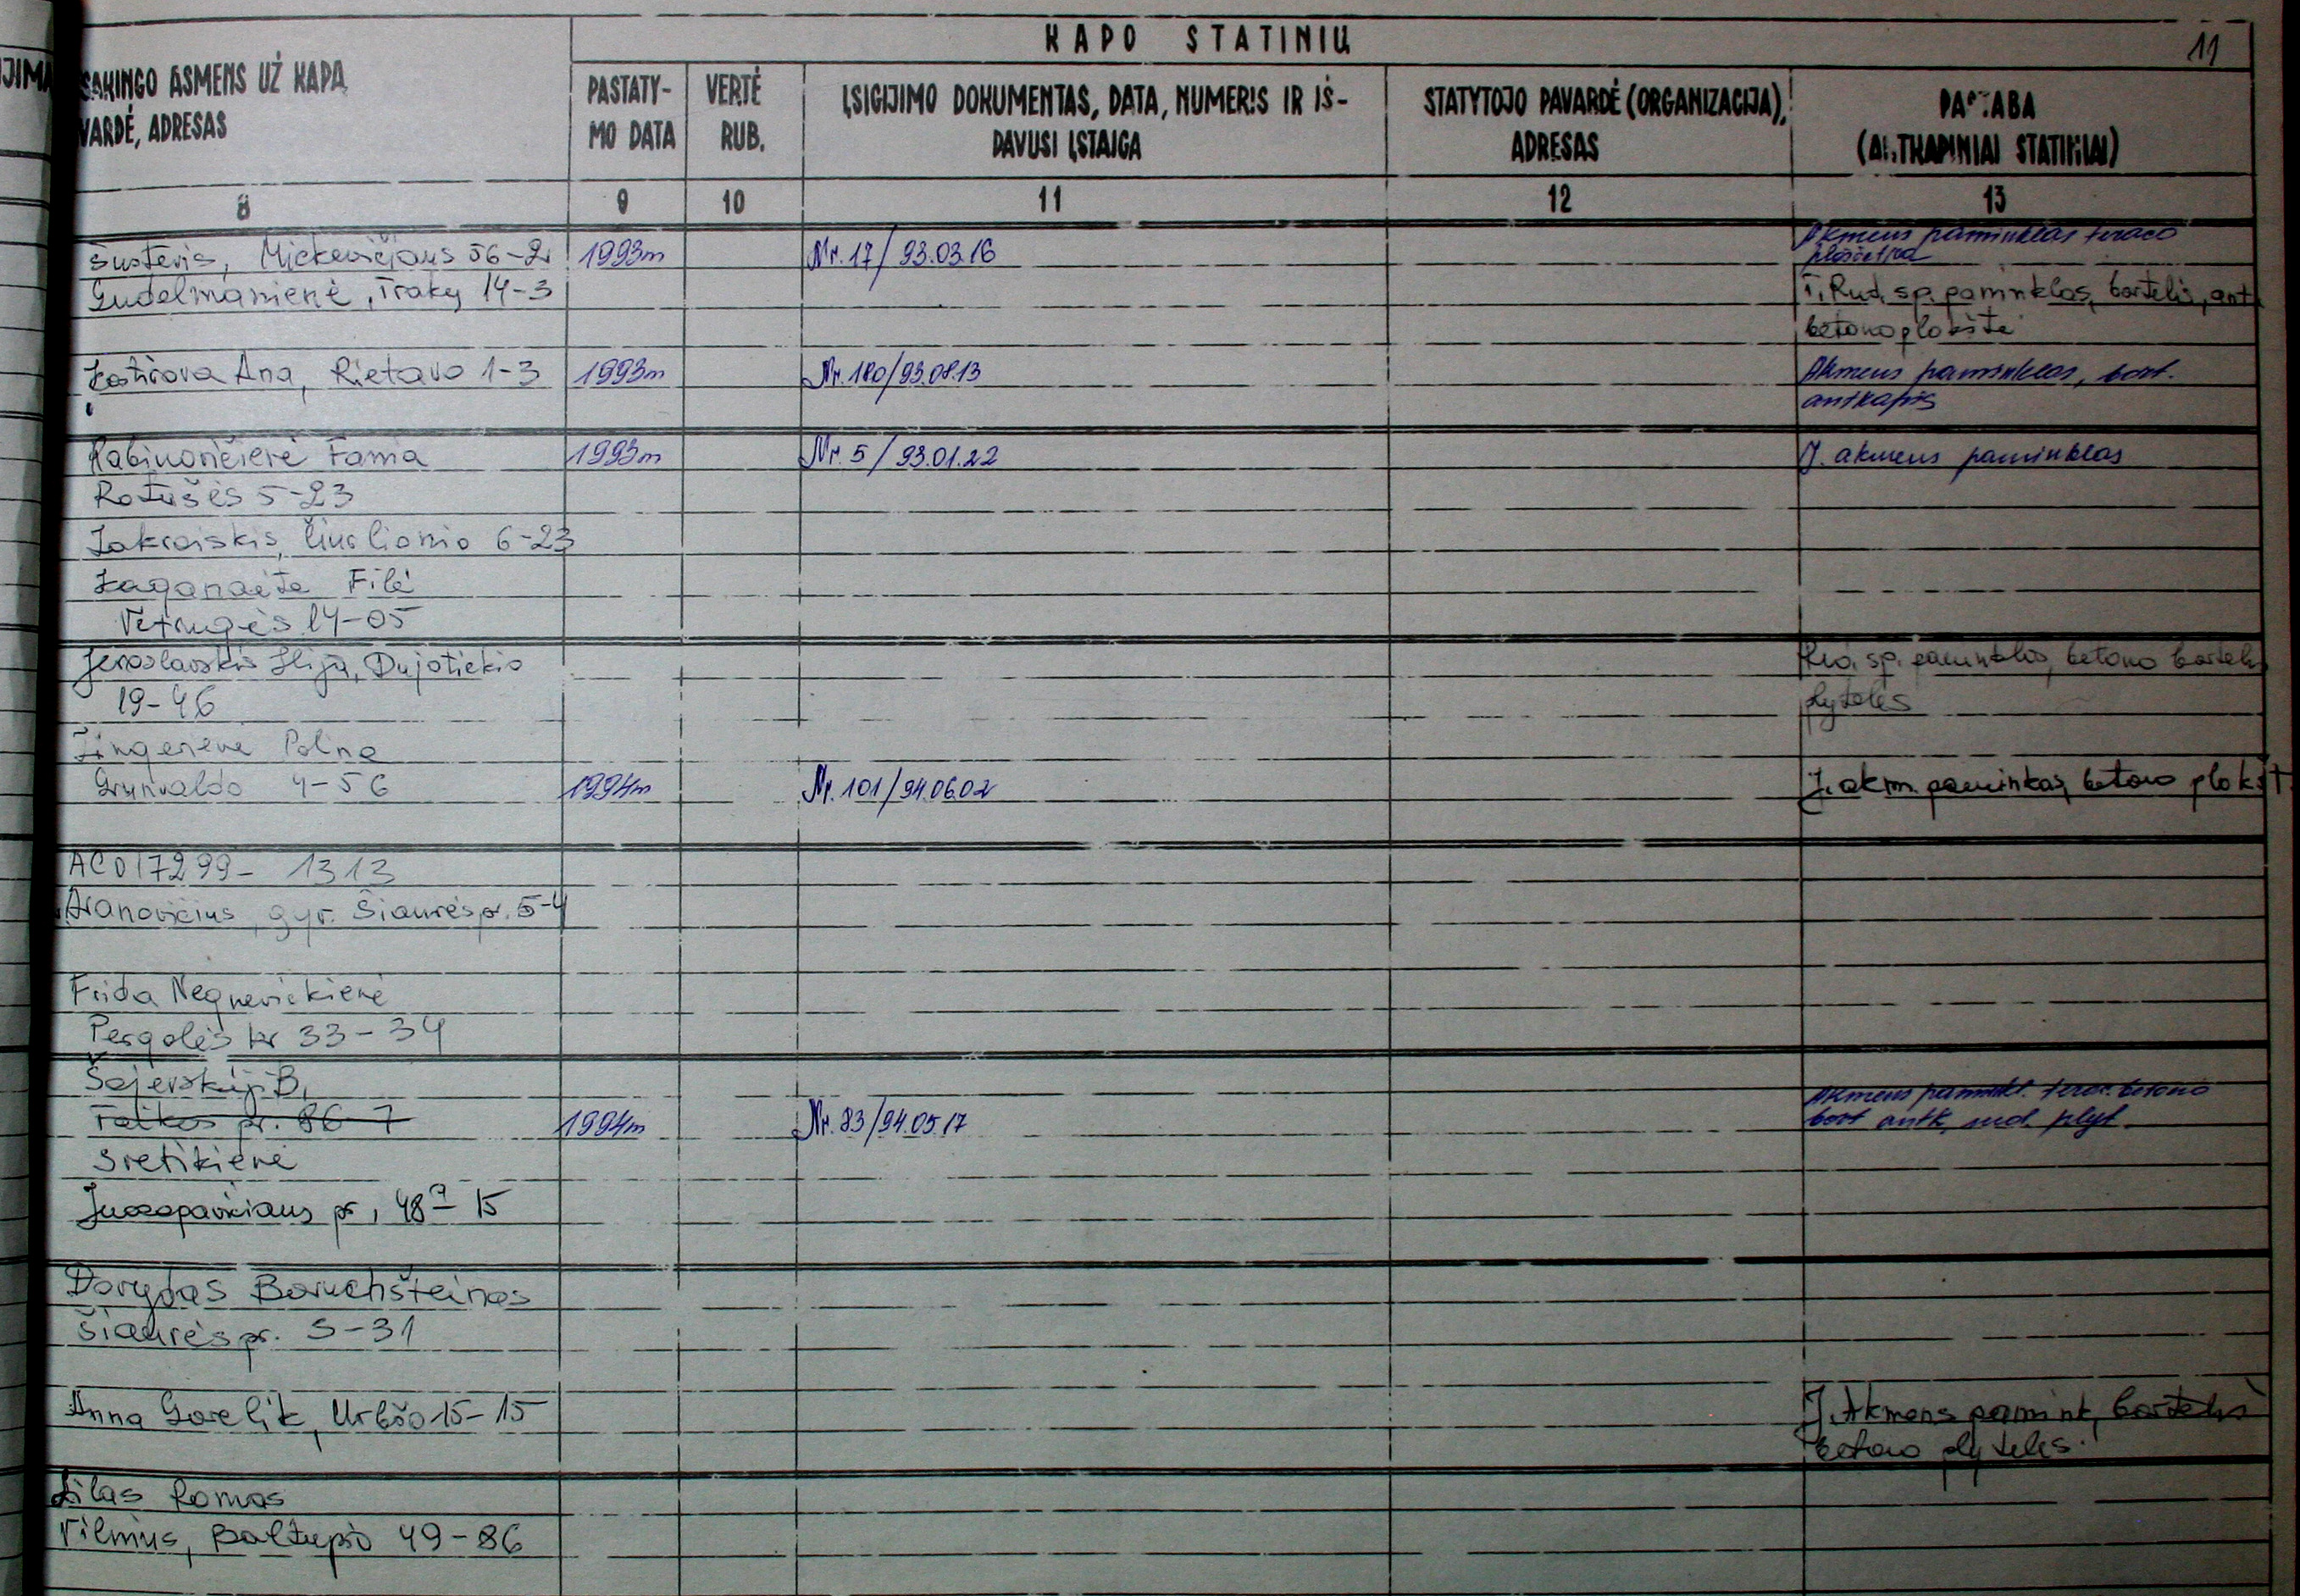 KAPO STATINIŲ
11
JIMA
SAKINGO ASMENS UŽ KAPĄ
VARDĖ, ADRESAS
PASTATY-
MO DATA
VERTĖ
RUB.
ĮSIGIJIMO DOKUMENTAS, DATA, NUMERIS IR IŠ-
DAVUSI ĮSTAIGA
STATYTOJO PAVARDĖ (ORGANIZACIJA),
ADRESAS
PASTABA
(ANTKAPINIAI STATINIAI)
8 9 10 11 12 13
Šusteris, Mickevičiaus 56-2 1993m Nr. 17/93.03.16 Akmens paminklas teraco
Gudelmanienė, Trakų 14-3 T. Rud. sp. paminklas, bortelis, ant
betono plokšte
Ana, Rietavo 1-3 1993m Nr. 180/93.08.13 Akmens paminklas, bort.
antkapis
Rabinovičienė Fania 1993m Nr. 5/93.01.22 J. akmens paminklas
Rotušės 5-23
Zakraiskis, Čiurlionio 6-23
Kaganaitė Filė
Vėtrungės 14-05
Jeroslavskis Ilija, Dujotiekio Rud. sp. paminklas, betono bortelis
19-46 plytelės
Zingerienė Polina
Grunvaldo 4-56 1994m Nr. 101/94.06.02 J. akm. paminkas, betono plokšt
ACO 17299- 1313
Aranovičius, gyv. Šiaurės pr. 5-4
Frida Negnevickienė
Pergalės kr 33-34
Šajevskij B, Akmens paminkl. terac. betono
Taikos pr. 86-7 1994m Nr. 83/94.05.17 bort antk, sud. plyt.
Sretikienė
Juozapavičiaus pr, 48a-15
Dovydas Baruchšteinas
Šiaurės pr. 5-31
Anna Gorelik, Urbšo 15-15 J. Akmens pamink, bortelis
betono plytelės.
Lilas Romas
Vilnius, Baltupio 49-86